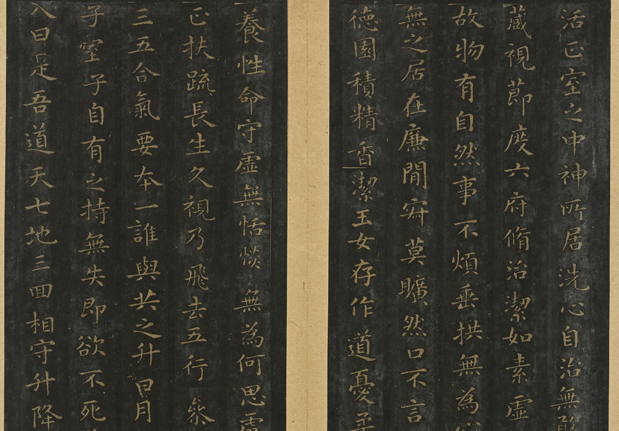 活正室之中神所居洗心自治無敢
藏視節度六府脩治潔如素虛
故物有自然事不煩垂拱無為
無之居在廉閒寂莫曠然口不言
德園積精香潔玉女存作道憂柔
養性命守虛無恬惔無為何思慮
正扶疏長生久視乃飛去五行參
三五合氣要本一誰與共之升日月
子室子自有之持無失即欲不死
入曰是吾道天七地三回相守升降